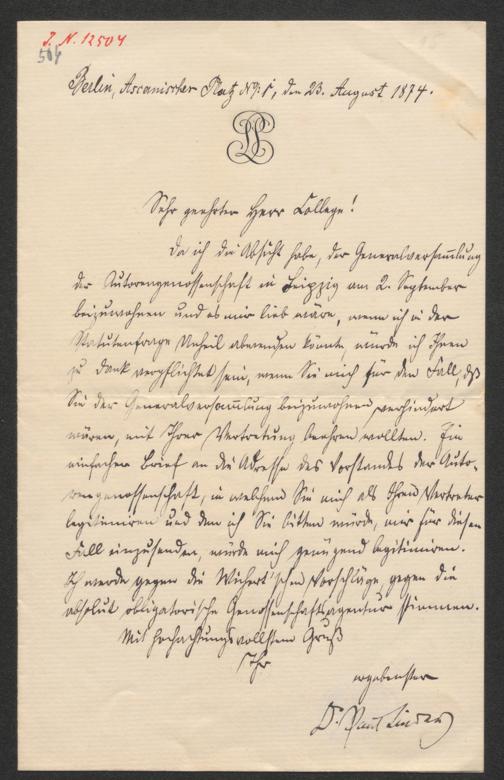 J. N. 12504
504
Berlin, Ascanischer Platz No: 1, den 23. August 1874.
PL
Sehr geehrter Herr College!
Da ich die Absicht habe, der Generalversammlung
der Autorengenossenschaft in Leipzig am 2. September
beizuwohnen und es mir lieb wäre, wenn ich in der
Statutenfrage Unheil abwenden könnte, würde ich Ihnen
zu Dank verpflichtet sein, wenn Sie mich für den Fall, daß
Sie der Generalversammlung beizuwohnen verhindert
wären, mit Ihrer Vertretung beehren wollten. Ein
einfacher Brief an die Adresse des Vorstandes der Auto-
rengenossenschaft, in welchem Sie mich als Ihren Vertreter
legitimiren und den ich Sie bitten würde, mir für diesen
Fall einzusenden, würde mich genügend legitimiren.
Ich werde gegen die Wichert'schen Vorschläge, gegen die
absolut obligatorische Genossenschaftsagentur stimmen.
Mit hochachtungsvollstem Gruß
Ihr
ergebenster
Dr. Paul Lindau